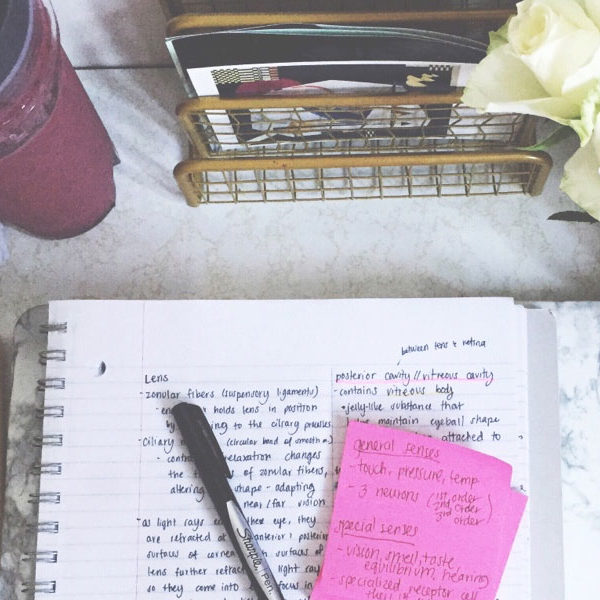 between lens & retina
Lens
-zonular fibers (suspensory ligaments)
- holds lens in position
by to the ciliary
-ciliary (circular band of smooth m)
- relaxation changes
the of zonular fibers,
altering shape - adapting
near/far vision
-as light rays the eye, they
are refracted at anterior & posterior
surfaces of cornea surfaces of
lens further refract light rays
so they come into focus in
posterior cavity//vitreous cavity
-contains vitreous body
•jelly-like substance that
maintain eyeball shape
attached to
general senses
-touch, pressure, temp
- 3 neurons (1st order
2nd order
3rd order)
special senses
- vision, smell, taste,
equilibrium, hearing
-specialized receptor cell
Sharpie Pen